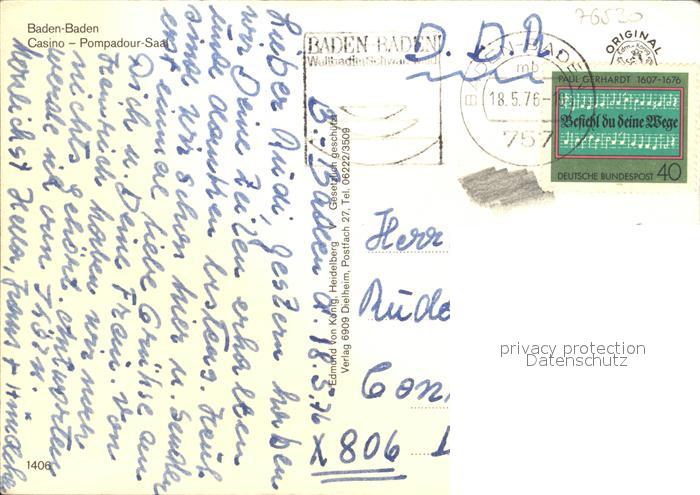 Baden-Baden
Casino – Pompadour-Saal
BADEN-BADEN
Weltbad im Schwarzwald
D.D.R.
76530
BADEN-BADEN
mb
18.5.76-16
757
ORIGINAL
PAUL GERHARDT 1607–1676
Befiehl du deine Wege
DEUTSCHE BUNDESPOST 40
B.-Baden d. 18.5.76
Lieber Rudi, gestern haben
wir Deine Zeilen erhalten
und danken bestens. Heute
sind wir schon hier u. senden
erst einmal liebe Grüße an
Dich u. Deine Frau. Von
Heinrich haben wir noch
nichts gehört. Antworten
werde ich von
Herzlichst Hella, Franz +
Edmund von König, Heidelberg Gesetzlich geschützt
Verlag 6909 Dielheim, Postfach 27, Tel. 06222/3509
Herr
Rudo
Con
X 806
1406
privacy protection
Datenschutz